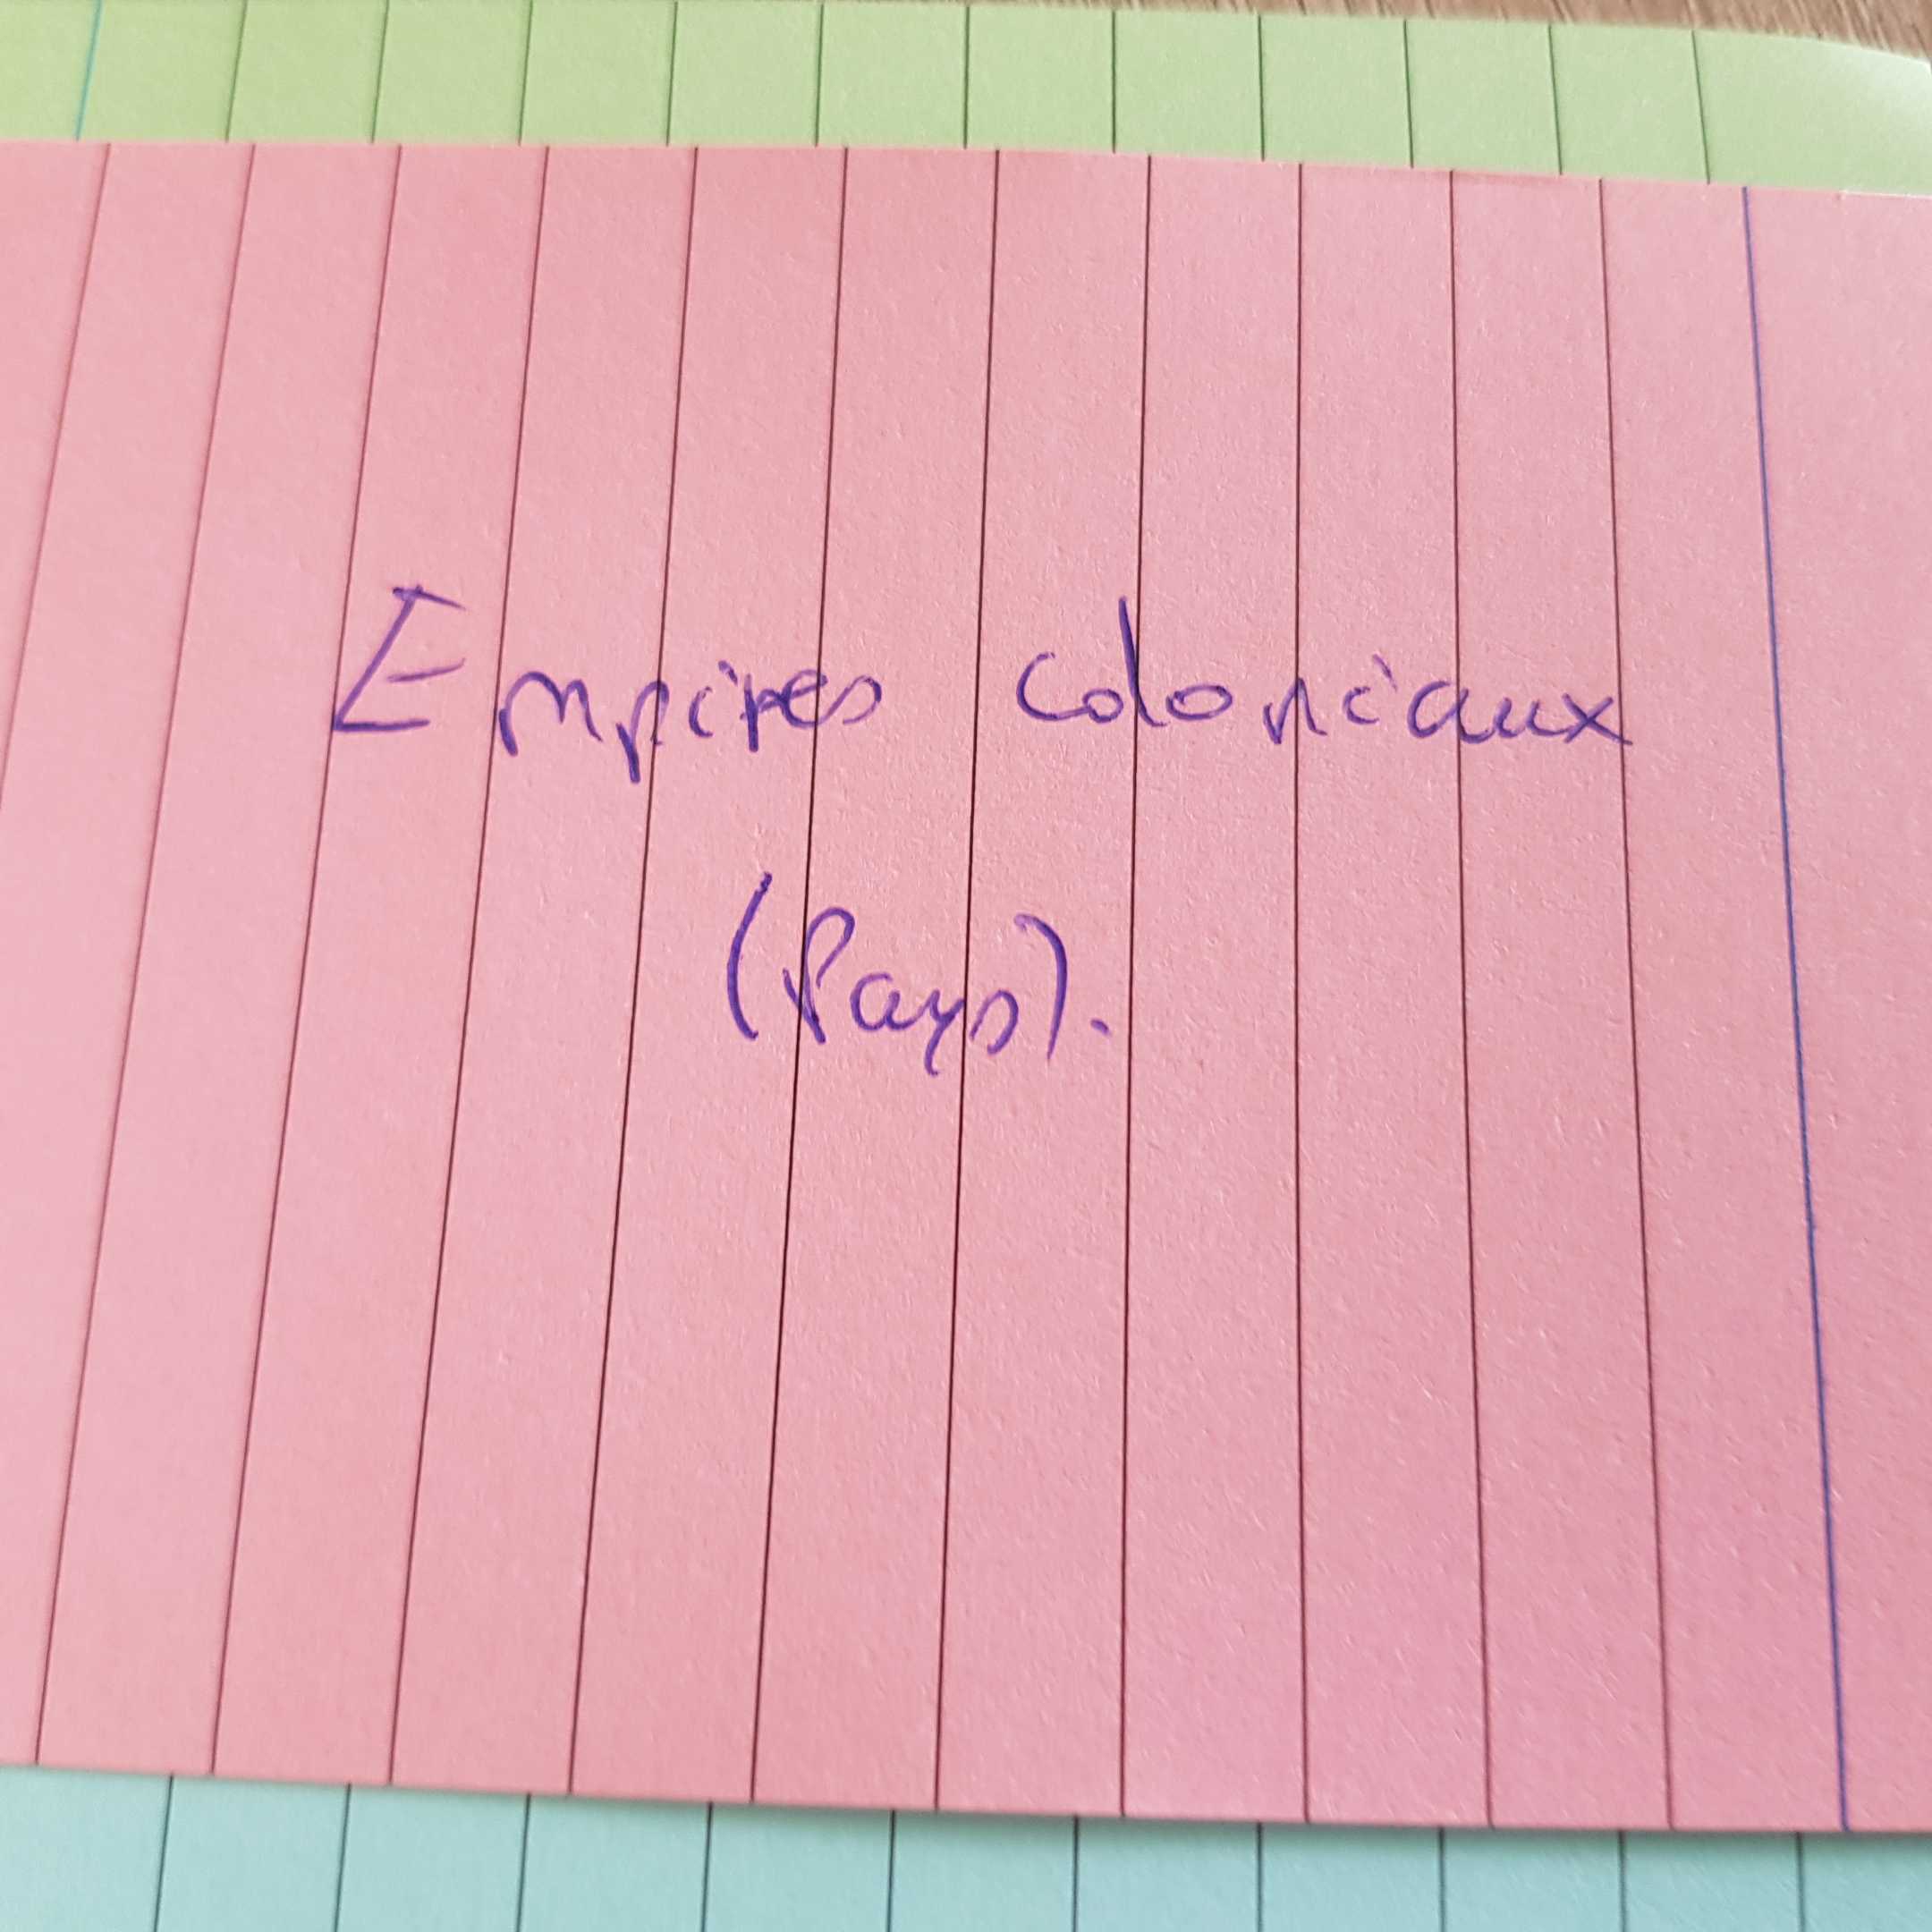 Empires coloniaux
(Pays).